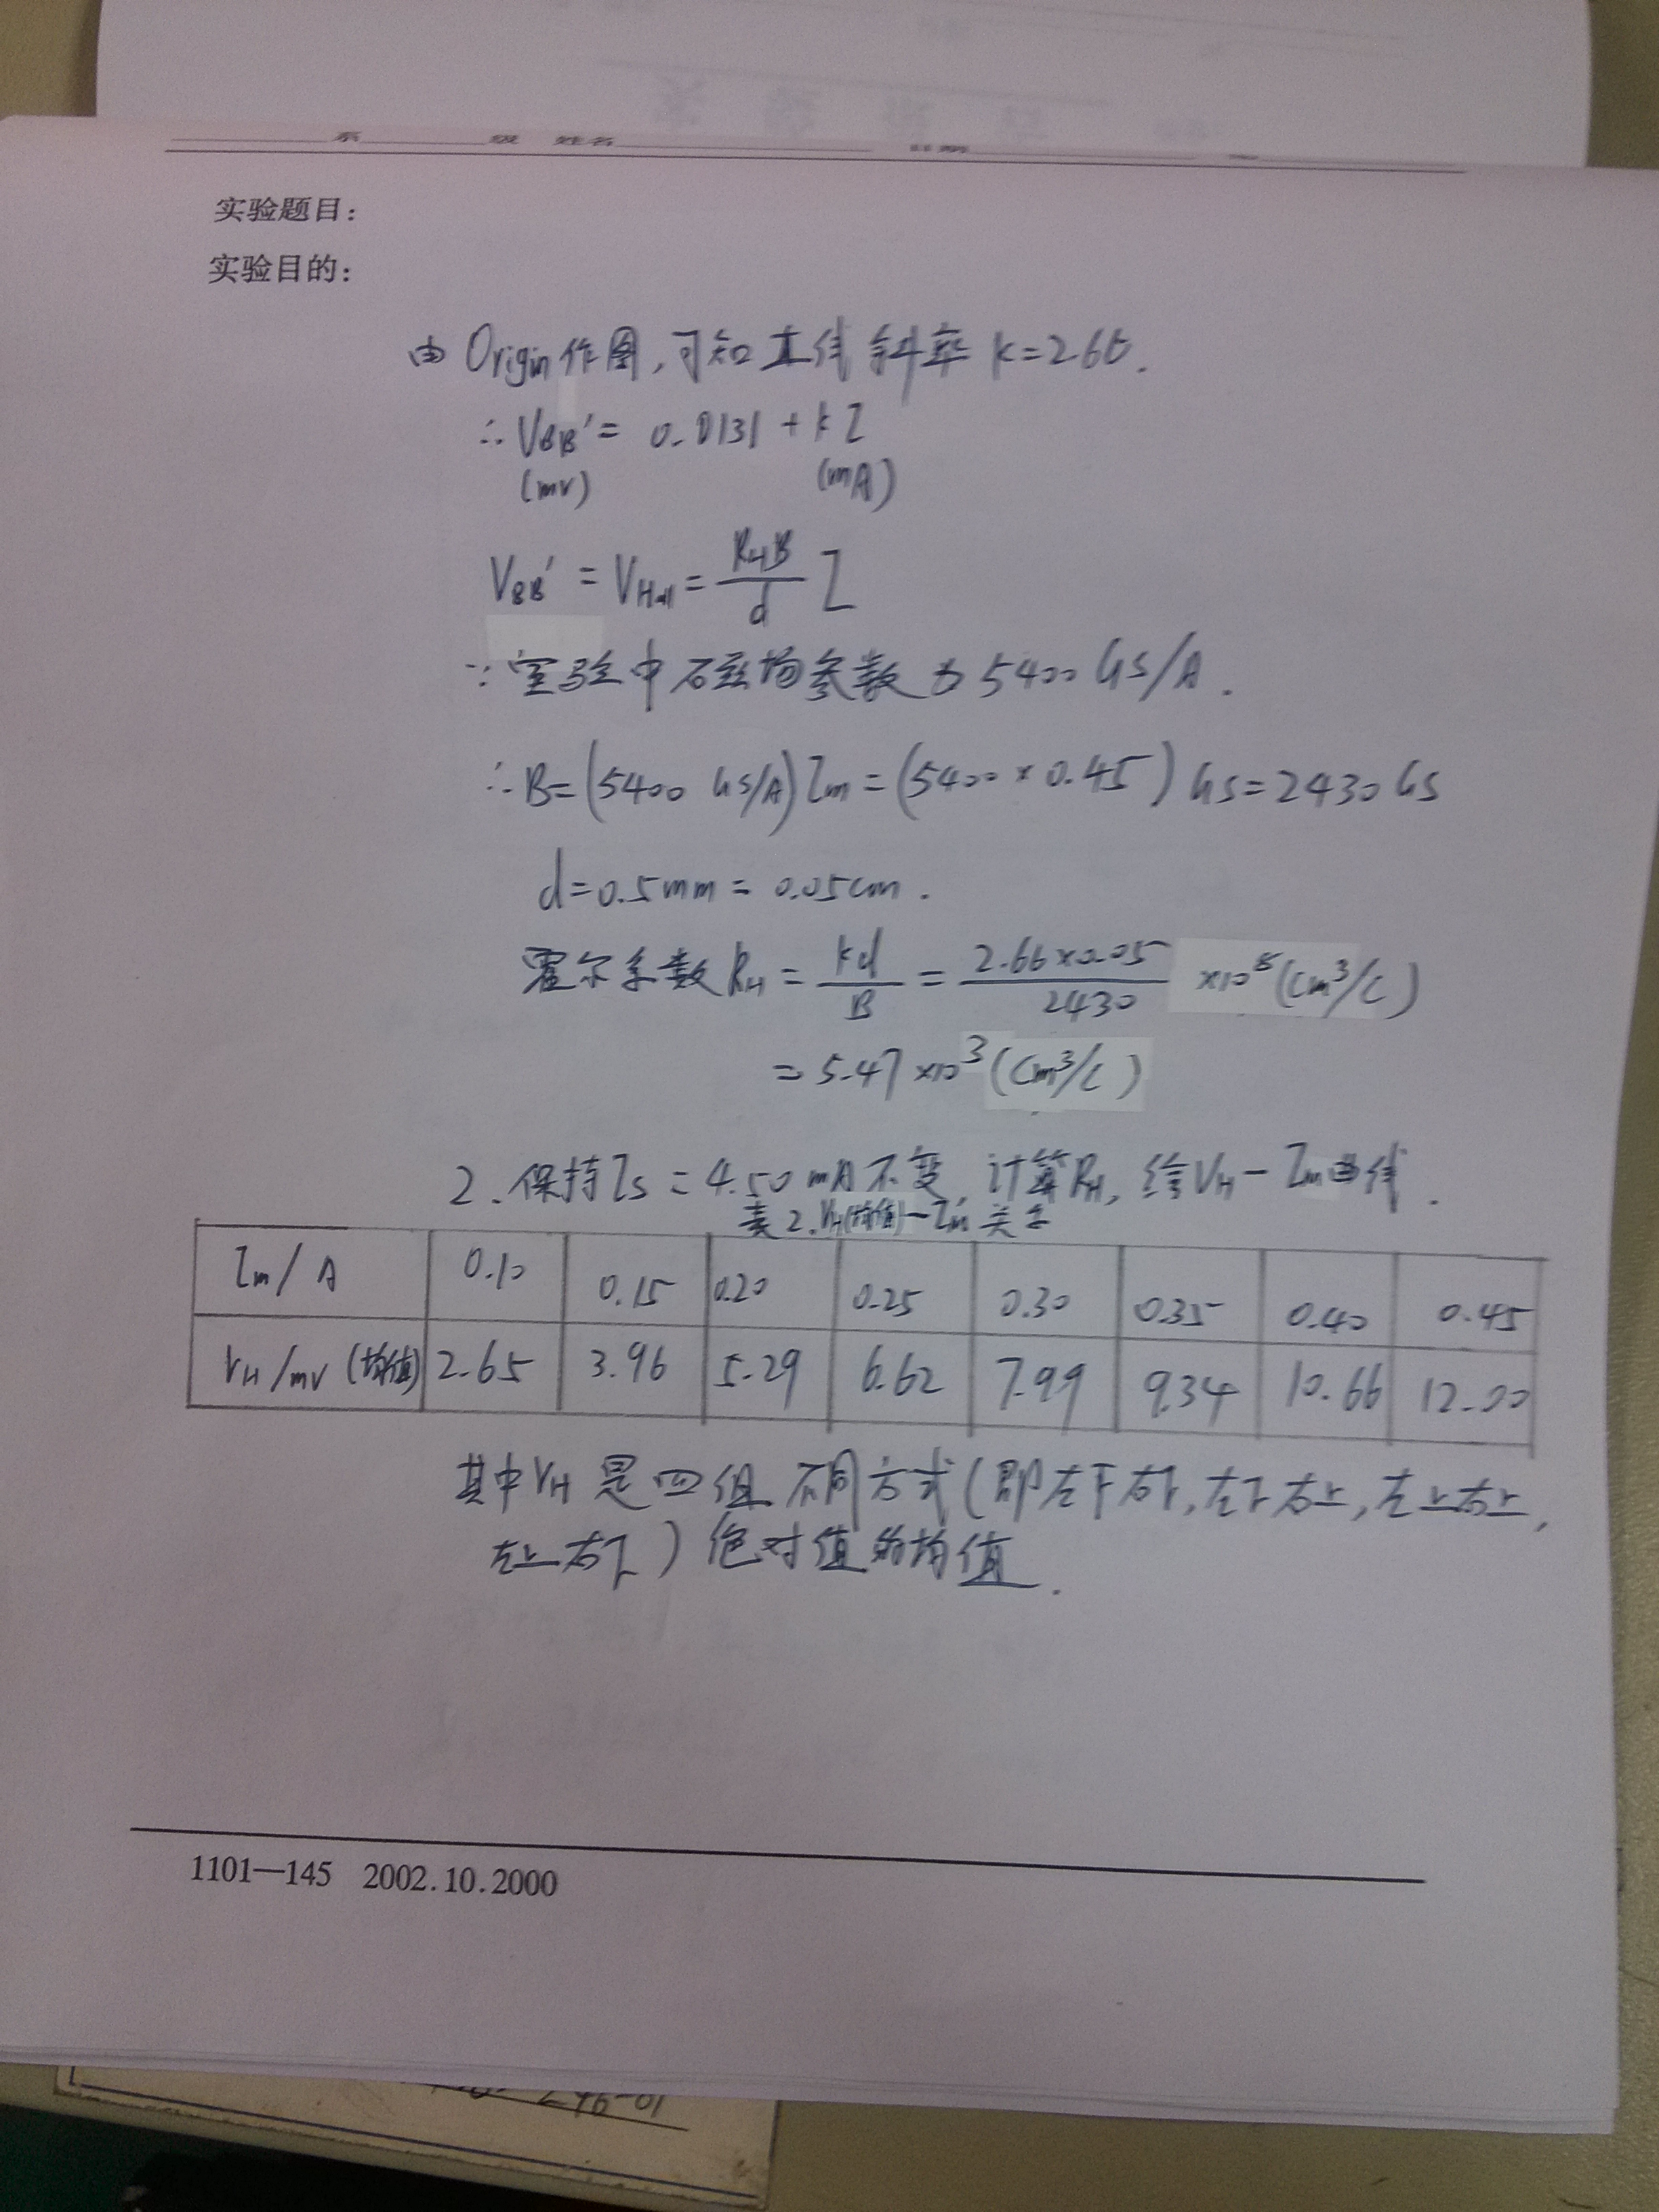 系 级 姓名 日期
实验题目：
实验目的：
由Origin作图，可知直线斜率 k=2.66.
∴ VBB' = 0.0131 + kI
(mv) (mA)
VBB' = VHall = RHB/d I
∵ 实验中磁场参数为5400 GS/A.
∴ B=(5400 GS/A)Im=(5400×0.45) GS=2430GS
d=0.5mm = 0.05cm.
霍尔系数RH = kd/B = 2.66×0.05/2430 ×10⁸(cm³/C)
= 5.47 ×10³(cm³/C)
2.保持Is = 4.50 mA不变,计算RH,绘VH-Im曲线.
表2.VH(均值)-Im关系
Im/A 0.10 0.15 0.20 0.25 0.30 0.35 0.40 0.45
VH/mv (均值) 2.65 3.96 5.29 6.62 7.99 9.34 10.66 12.00
其中VH是四组不同方式(即左下右下,左下右上,左上右上,
左上右下)绝对值的均值.
1101—145 2002.10.2000